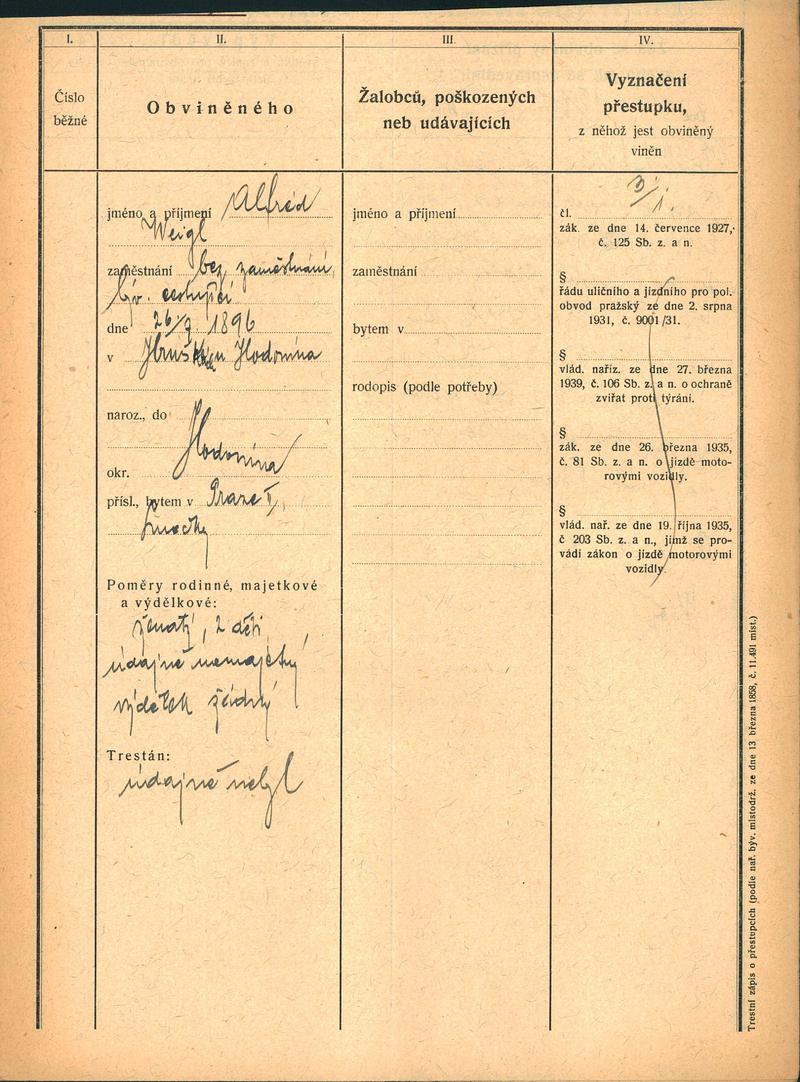 I.
Číslo
běžné
II.
Obviněného
jméno a příjmení Alfréd
Weigl
zaměstnání bez zaměstnání,
býv. cestující
dne 26/9 1896
v u Hodonína
naroz., do
Hodonína
okr.
přísl., bytem v Praze
Poměry rodinné, majetkové
a výdělkové:
ženatý, 2 děti,
údajně nemajetný
výdělek žádný
Trestán:
údajně nebyl
III.
Žalobců, poškozených
neb udávajících
jméno a příjmení
zaměstnání
bytem v
rodopis (podle potřeby)
IV.
Vyznačení
přestupku,
z něhož jest obviněný
viněn
3/1.
čl.
zák. ze dne 14. července 1927,
č. 125 Sb. z. a n.
§
řádu uličního a jízdního pro pol.
obvod pražský ze dne 2. srpna
1931, č. 9001/31.
§
vlád. naříz. ze dne 27. března
1939, č. 106 Sb. z. a n. o ochraně
zvířat proti týrání.
§
zák. ze dne 26. března 1935,
č. 81 Sb. z. a n. o jízdě moto-
rovými vozidly.
§
vlád. nař. ze dne 19. října 1935,
č 203 Sb. z. a n., jímž se pro-
vádí zákon o jízdě motorovými
vozidly.
Trestní zápis o přestupcích (podle nař. býv. místodrž. ze dne 13 března 1858, č. 11.491 míst.)